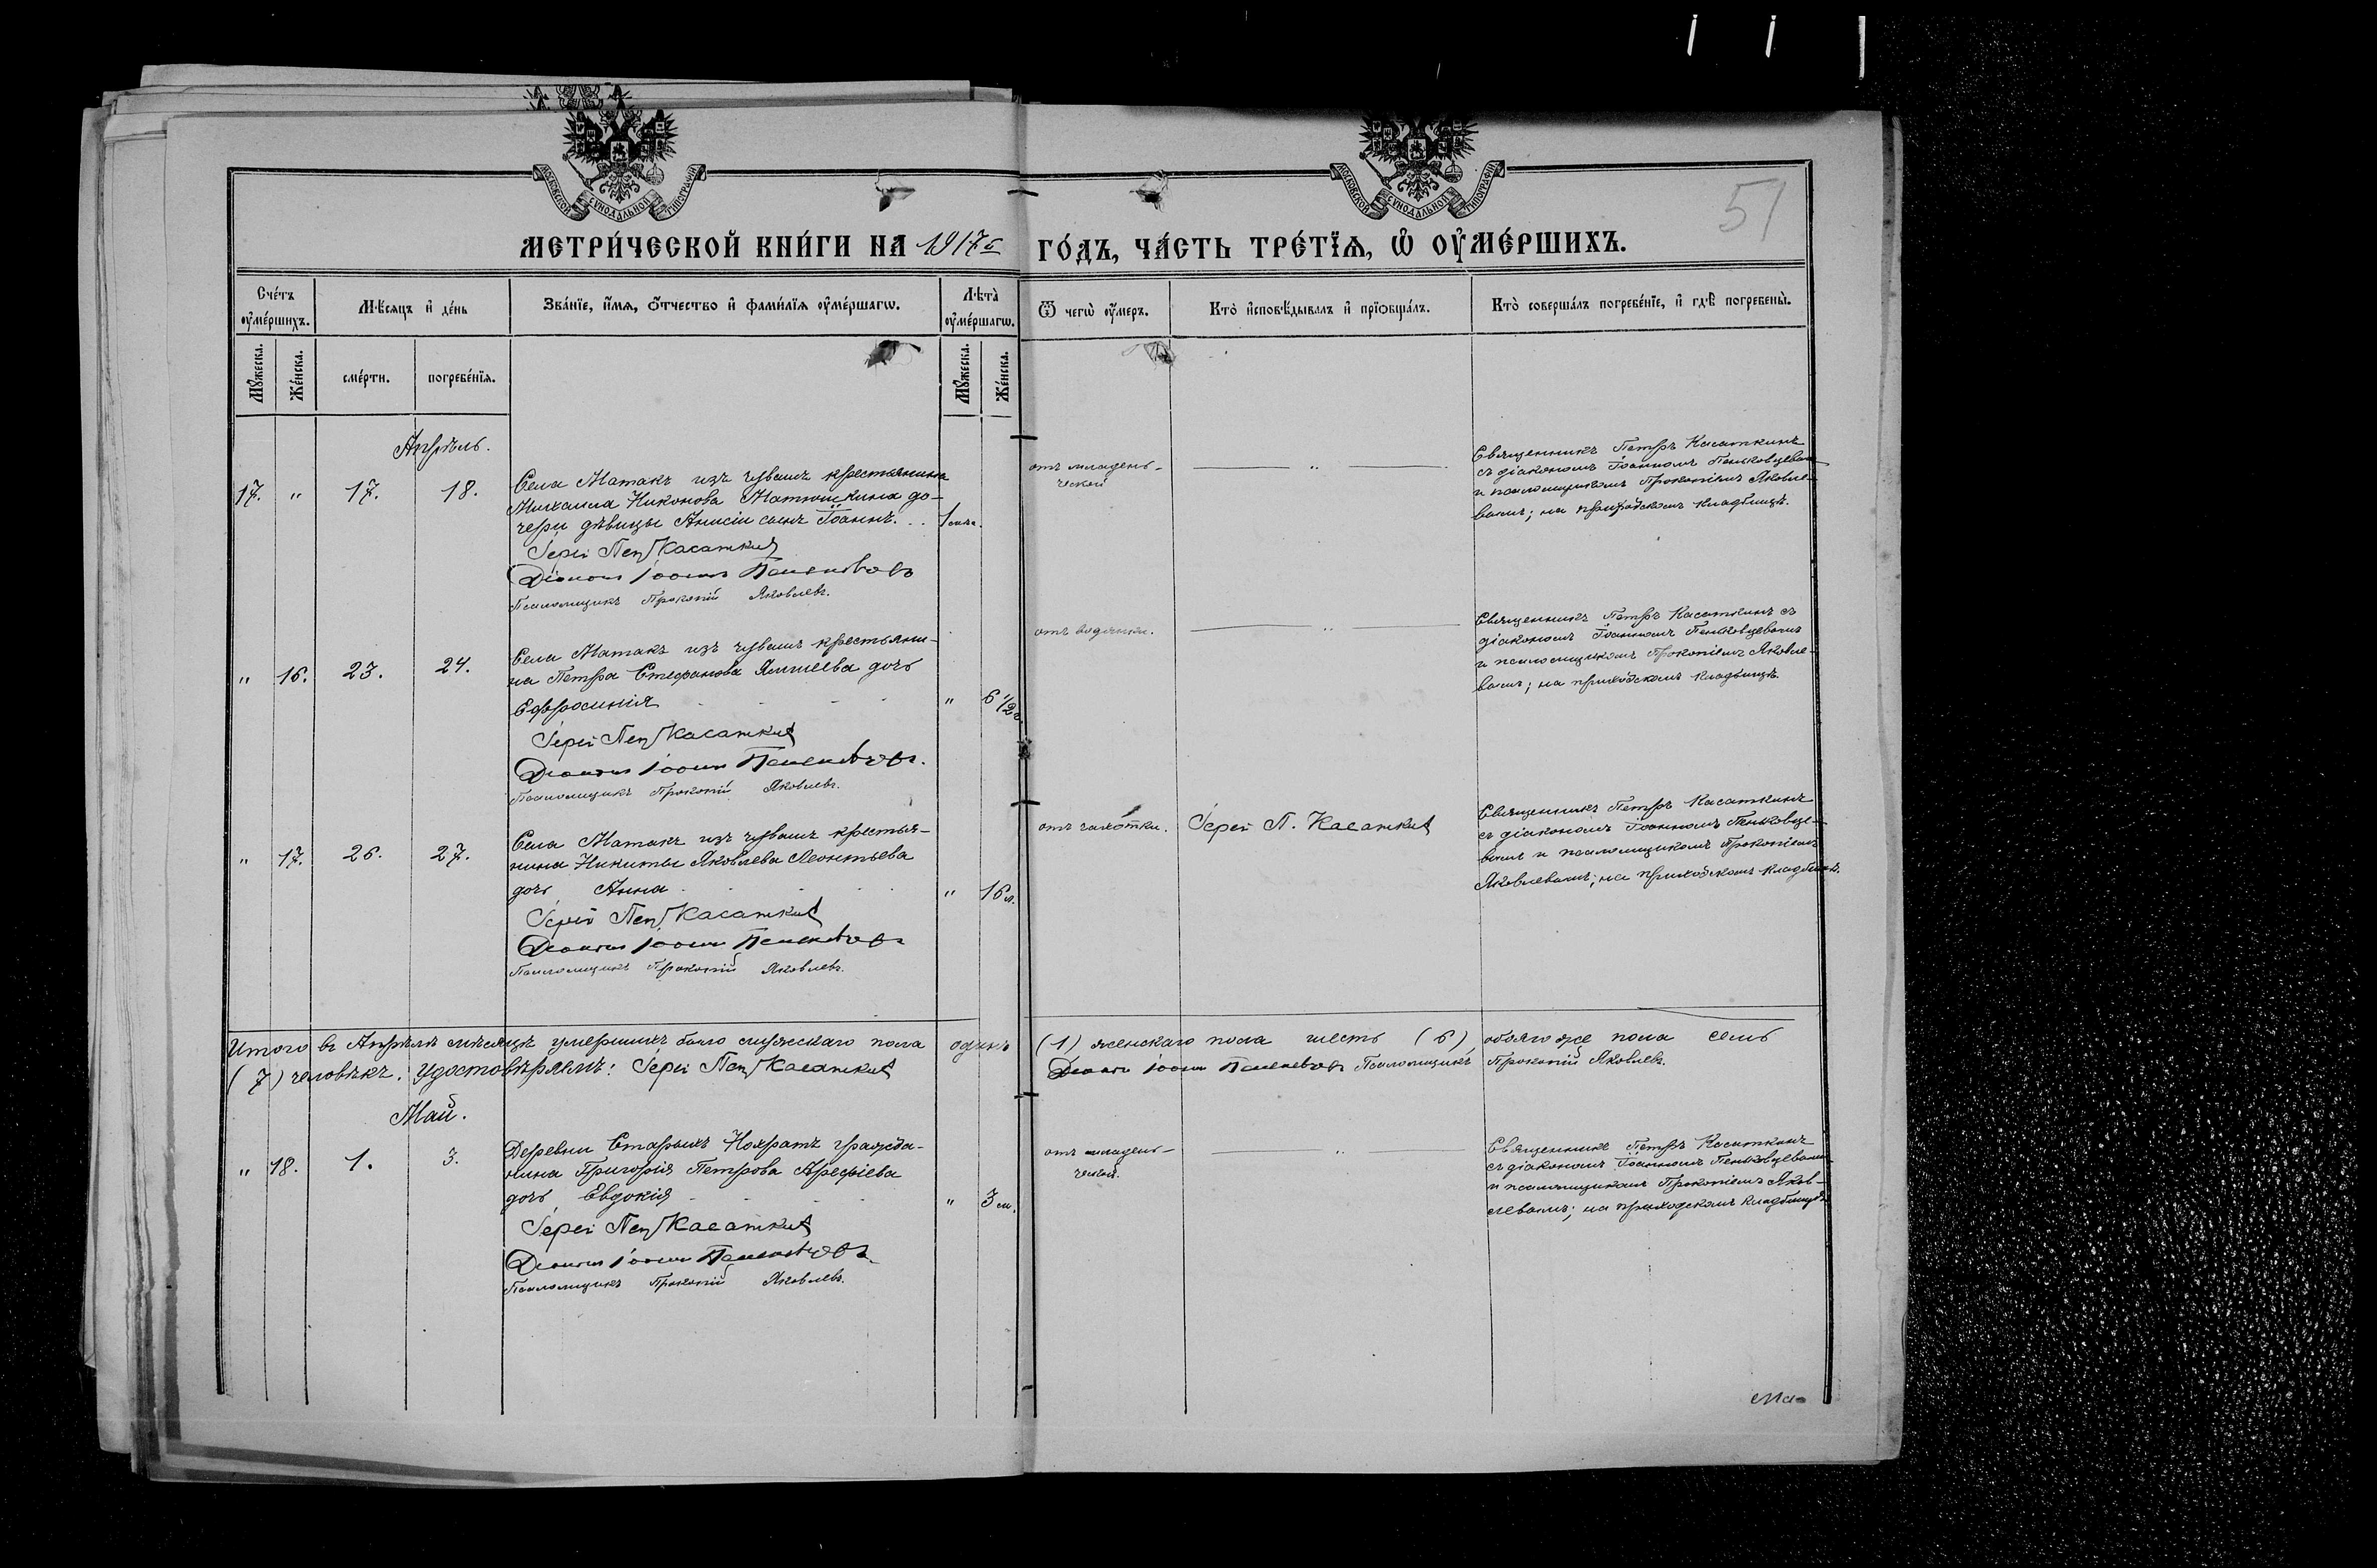 МОСКОВСКОЙ СѴНОДАЛЬНОЙ ТИПОГРАФІИ
МОСКОВСКОЙ СѴНОДАЛЬНОЙ ТИПОГРАФІИ
51
МЕТРИ́ЧЕСКОЙ КНИ́ГИ НА 1917 г ГО́ДЪ, ЧА́СТЬ ТРЕ́ТЇѦ, Ѡ҆ ОУ҆МЕ́РШИХЪ.
Сче́тъ оу҆ме́ршихъ.
Мѣ́сяцъ и҆ де́нь
Зва́нїе, и҆́мѧ, ѻ҆́тчество и҆ фами́лїѧ оу҆ме́ршагѡ.
Лѣ́та оу҆ме́ршагѡ.
Ѿ чегѡ̀ оу҆́меръ.
Кто̀ и҆сповѣ́дывалъ и҆ прїѻбща́лъ.
Кто̀ соверша́лъ погребе́нїе, и҆ гдѣ̀ погребены̀.
Мꙋ́жеска.
Же́нска.
сме́рти.
погребе́нїѧ.
Мꙋ́жеска.
Же́нска.
Апрѣль.
17. " 17. 18.
Села Матакъ изъ чувашъ крестьянина
Михаила Никонова Матюшкина до-
чери дѣвицы Анисіи сынъ Іоаннъ.
Іерей Петр Касаткин
Діаконъ Іоаннъ
Псаломщикъ Прокопій Яковлевъ.
отъ младен-
ческой
Священникъ Петръ Касаткинъ
съ діакономъ Іоанномъ Пеньковцевым
и псаломщикомъ Прокопіемъ Яковле-
вымъ; на приходскомъ кладбищѣ.
" 16. 23. 24.
Села Матакъ изъ чувашъ крестьяни-
на Петра Стефанова дочь
Евфросинія " 6 1/2 г.
Іерей Петр Касаткин
Діаконъ Іоаннъ
Псаломщикъ Прокопій Яковлевъ.
отъ водянки.
Священникъ Петръ Касаткинъ съ
діакономъ Іоанномъ Пеньковцевымъ
и псаломщикомъ Прокопіемъ Яковле-
вымъ; на приходскомъ кладбищѣ.
" 17. 26. 27.
Села Матакъ изъ чувашъ крестья-
нина Никиты Яковлева Леонтьева
дочь Анна " 16 л.
Іерей Петр Касаткин
Діаконъ Іоаннъ
Псаломщикъ Прокопій Яковлевъ.
отъ чахотки.
Іерей П. Касаткин
Священникъ Петръ Касаткинъ
съ діакономъ Іоанномъ Пеньковце-
вымъ и псаломщикомъ Прокопіемъ
Яковлевымъ; на приходскомъ кладбищѣ.
Итого въ Апрѣлѣ мѣсяцѣ умершихъ было мужескаго пола одинъ (1) женскаго пола шесть (6) обоего же пола семь
(7) человѣкъ. Удостовѣряемъ: Іерей Петр Касаткин Діаконъ Іоаннъ Псаломщикъ Прокопій Яковлевъ.
Май.
" 18. 1. 3.
Деревни Старыхъ Нохратъ гражда-
нина Григорія Петрова Арефіева
дочь Евдокія " 3 м.
Іерей Петр Касаткин
Діаконъ Іоаннъ
Псаломщикъ Прокопій Яковлевъ.
отъ младен-
ческой.
Священникъ Петръ Касаткинъ
съ діакономъ Іоанномъ Пеньковцевымъ
и псаломщикомъ Прокопіемъ Яков-
левымъ; на приходскомъ кладбищѣ.